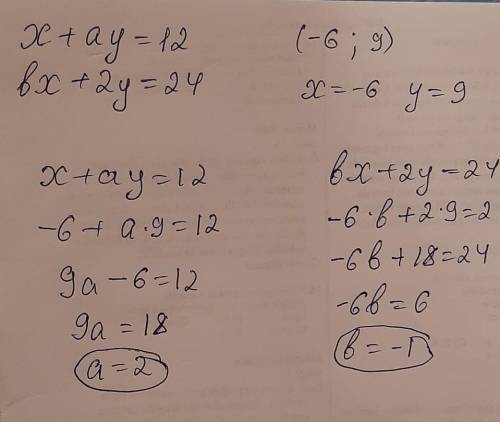 x + ay = 12
bx + 2y = 24
(-6 ; 9)
x = -6 y = 9
x + ay = 12
-6 + a·9 = 12
9a - 6 = 12
9a = 18
a = 2
bx + 2y = 24
-6·b + 2·9 = 2
-6b + 18 = 24
-6b = 6
b = -1